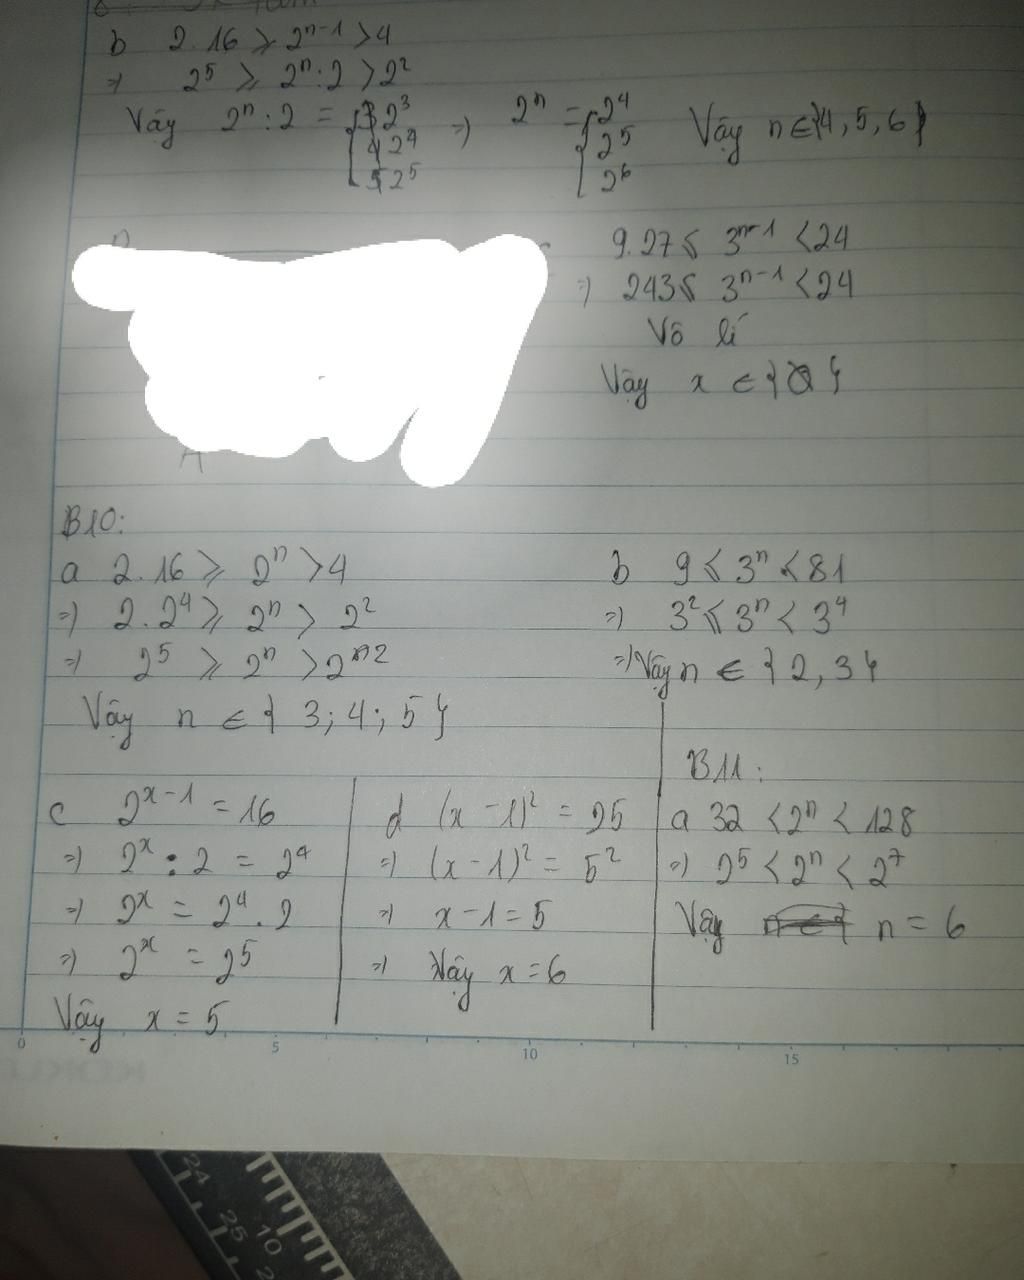 b 2.16 ⩾ 2ⁿ⁻¹ >4
=) 2⁵ ⩾ 2ⁿ:2 >2²
Vậy 2ⁿ:2 = [ 2³ =) 2ⁿ = [ 2⁴ Vậy n ∈{4, 5, 6}
2⁴ 2⁵
2⁵ 2⁶
9.27 ⩽ 3ⁿ⁻¹ <24
=) 243 ⩽ 3ⁿ⁻¹ <24
Vô lí
Vậy x ∈ {∅}
B10:
a 2.16 ⩾ 2ⁿ >4
=) 2.2⁴ ⩾ 2ⁿ > 2²
=) 2⁵ ⩾ 2ⁿ > 2²
Vậy n ∈ { 3; 4; 5 }
b 9 ⩽ 3ⁿ < 81
=) 3² ⩽ 3ⁿ < 3⁴
=) Vậy n ∈ { 2, 3 }
c 2ˣ⁻¹ = 16
=) 2ˣ : 2 = 2⁴
=) 2ˣ = 2⁴ . 2
=) 2ˣ = 2⁵
Vậy x = 5
d (x - 1)² = 25
=) (x - 1)² = 5²
=) x - 1 = 5
=) Vậy x = 6
B11:
a 32 < 2ⁿ < 128
=) 2⁵ < 2ⁿ < 2⁷
Vậy n = 6
0 5 10 15
24 25
10